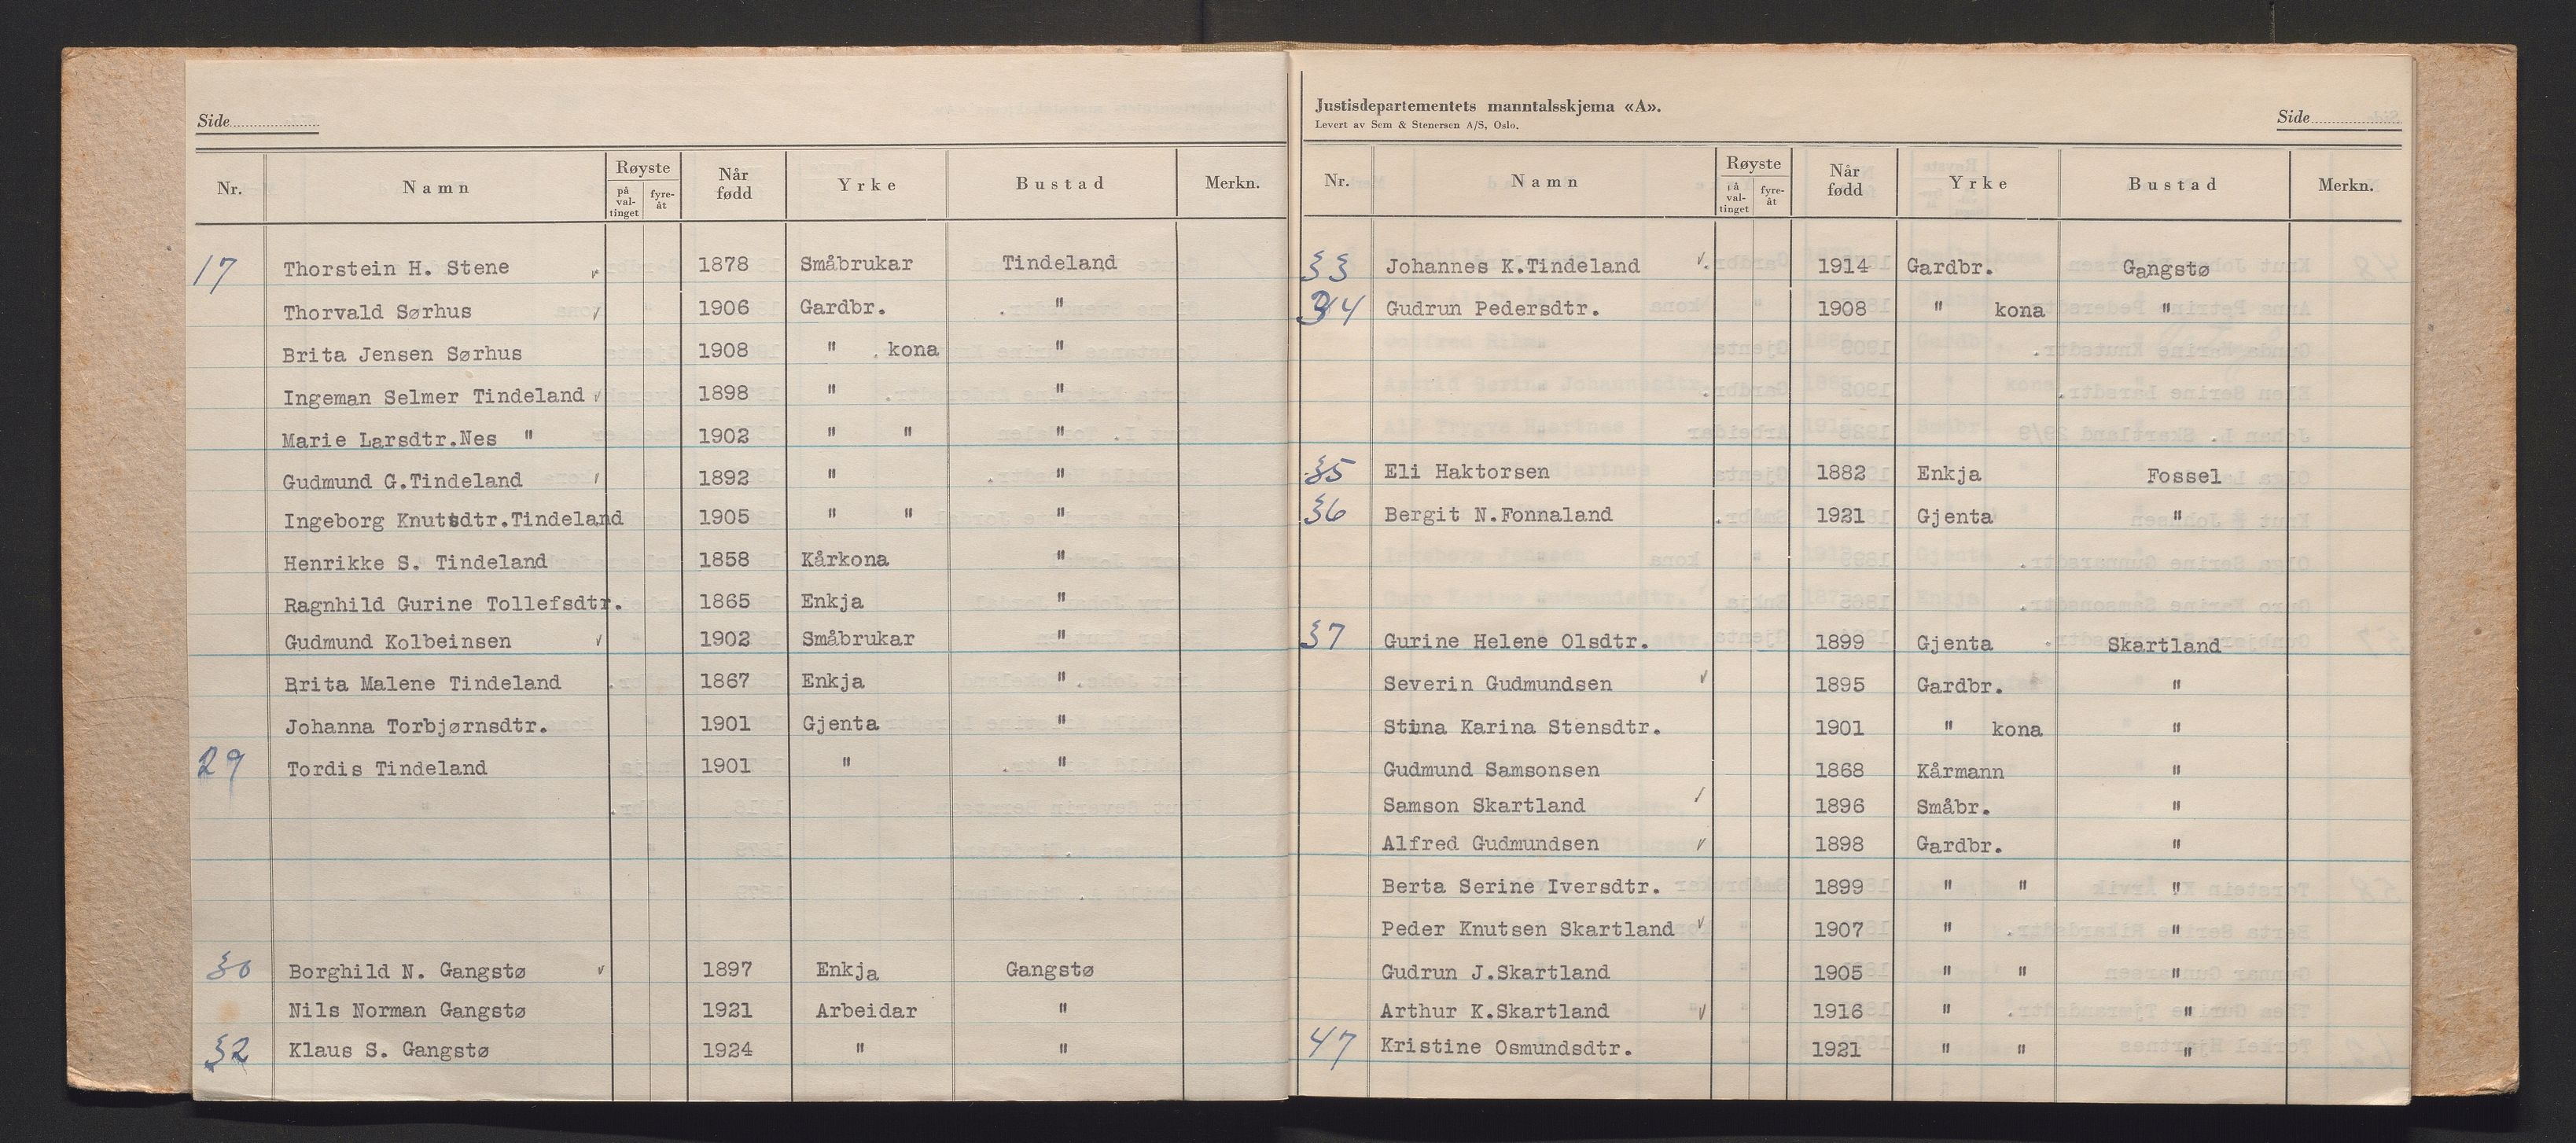 Side
Nr. Namn Røyste på val-tinget fyre-åt Når fødd Yrke Bustad Merkn.
17 Thorstein H. Stene ✓ 1878 Småbrukar Tindeland
Thorvald Sørhus ✓ 1906 Gardbr. "
Brita Jensen Sørhus 1908 " kona "
Ingeman Selmer Tindeland ✓ 1898 " "
Marie Larsdtr.Nes " 1902 " " "
Gudmund G.Tindeland ✓ 1892 " "
Ingeborg Knutsdtr.Tindeland 1905 " " "
Henrikke S. Tindeland 1858 Kårkona "
Ragnhild Gurine Tollefsdtr. 1865 Enkja "
Gudmund Kolbeinsen ✓ 1902 Småbrukar "
Brita Malene Tindeland 1867 Enkja "
Johanna Torbjørnsdtr. 1901 Gjenta "
29 Tordis Tindeland 1901 " "
30 Borghild N. Gangstø ✓ 1897 Enkja Gangstø
Nils Norman Gangstø 1921 Arbeidar "
32 Klaus S. Gangstø 1924 " "
Justisdepartementets manntalsskjema «A».
Levert av Sem & Stenersen A/S, Oslo.
Side
Nr. Namn Røyste på val-tinget fyre-åt Når fødd Yrke Bustad Merkn.
33 Johannes K.Tindeland ✓ 1914 Gardbr. Gangstø
34 Gudrun Pedersdtr. 1908 " kona "
35 Eli Haktorsen 1882 Enkja Fossel
36 Bergit N.Fonnaland 1921 Gjenta "
37 Gurine Helene Olsdtr. 1899 Gjenta Skartland
Severin Gudmundsen ✓ 1895 Gardbr. "
Stina Karina Stensdtr. 1901 " kona "
Gudmund Samsonsen 1868 Kårmann "
Samson Skartland ✓ 1896 Småbr. "
Alfred Gudmundsen ✓ 1898 Gardbr. "
Berta Serine Iversdtr. 1899 " " "
Peder Knutsen Skartland ✓ 1907 " "
Gudrun J.Skartland 1905 " " "
Arthur K.Skartland ✓ 1916 " "
47 Kristine Osmundsdtr. 1921 " " "